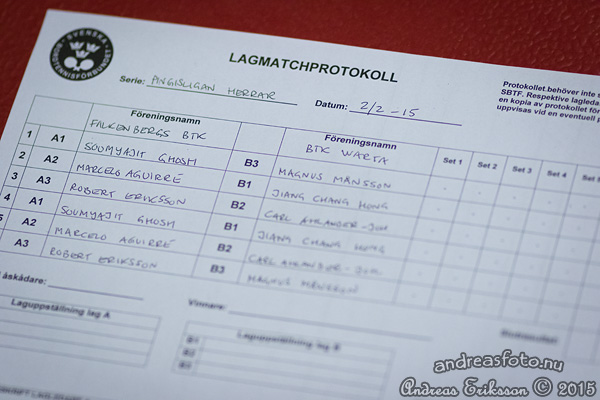 SVENSKA
BORDTENNISFÖRBUNDET
LAGMATCHPROTOKOLL
Serie: PINGISLIGAN HERRAR
Datum: 2/2-15
Protokollet behöver inte s
SBTF. Respektive lagleda
en kopia av protokollet för
uppvisas vid en eventuell p
Föreningsnamn Föreningsnamn Set 1 Set 2 Set 3 Set 4 Set 5
FALKENBERGS BTK BTK WARTA
1 A1 SOUMYAJIT GHOSH B3 MAGNUS MÅNSSON
2 A2 MARCELO AGUIRRE B1 JIANG CHANG HONG
3 A3 ROBERT ERIKSSON B2 CARL AHLANDER-JOH
4 A1 SOUMYAJIT GHOSH B1 JIANG CHANG HONG
5 A2 MARCELO AGUIRRE B2 CARL AHLANDER-JOH
A3 ROBERT ERIKSSON B3 MAGNUS MÅNSSON
l åskådare: Vinnare:
Laguppställning lag A Laguppställning lag B
B1
B2
B3
andreasfoto.nu
Andreas Eriksson © 2015